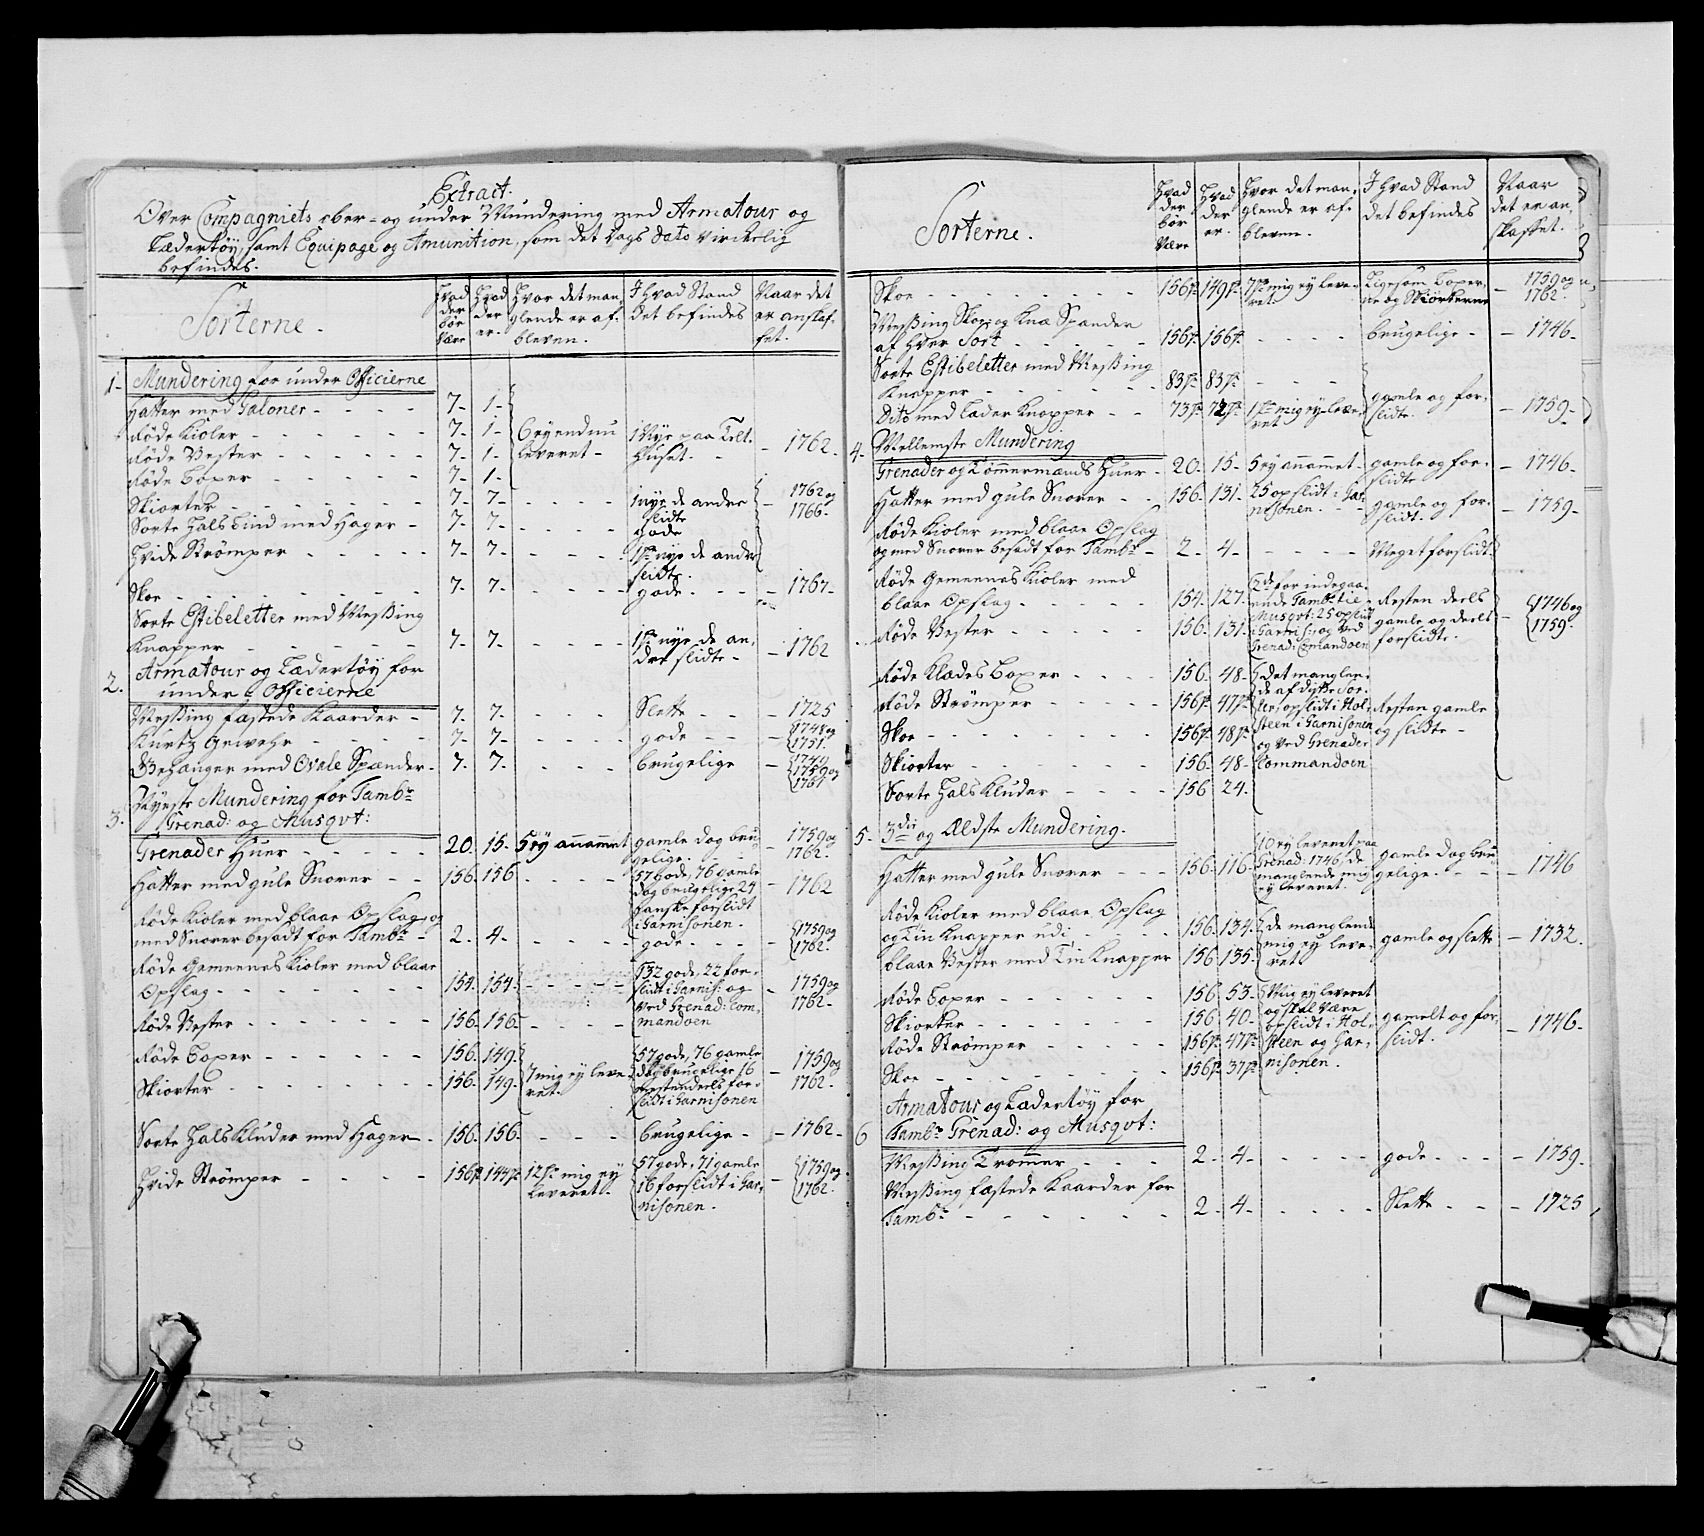 Extract.
Over Compagniets over- og under Mundering med Armatour og
Lædertøy, samt Equipage og Amunition, som det Dags Dato virckelig
befindes.
Sorterne.
Hvad der bør være
Hvad der er.
Hvor det manglende er afbleven.
I hvad Stand det befindes
Naar det er anskaffet.
1. Mundering for under Officierne
Hatter med Galoner - 7. 1.
Røde Kioler - 7. 1. 6 ey endnu leveret - 1 Nye paa Telt Huset. - 1762.
Røde Vester - 7. 1.
Røde Boxer - 7. 1.
Skiorter - 7. 7. - 1 nye de andre slidte - 1762 og 1766.
Sorte Hals bind med Hager - 7. 7. - gode
Hvide Strømper - 7. 7. - 1 pr nye de andre slidt.
Skoe - 7. 7. - gode - 1767.
Sorte Estibeletter med Messing
Knapper - 7. 7. - 1 pr nye de andre slidte - 1762
2. Armatour og Lædertøy for
under Officierne
Messing fæstede Kaarder - 7. 7. - Slette - 1725
Kurtz Gewehr - 7. 7. - gode - 1748 og 1751.
Gehenger med Ovale Spænder - 7. 7. - brugelige - 1749 1759 og 1761
3. Nyeste Mundering for Tambr
Grenad: og Musqvt:
Grenader Huer - 20. 15. 5 ey annammet gamle dog brugelige. - 1759 og 1762.
Hatter med gule Snorer - 156. 156 - 57 gode, 76 gamle dog brugelige 24 ganske forslidt i Garnisonen. - 1762
Røde Kioler med blaae Opslag, og
med Snorer besadt for Tambr - 2. 4. - gode - 1759 og 1762.
Røde Gemeenes Kioler med blaae
Opslag - 154. 154. - 132 gode, 22 forslidt i Garnis: og ved Grenad: Commandoen - 1759 og 1762.
Røde Vester - 156. 156.
Røde Boxer - 156. 149.
Skiorter - 156. 149. 7 mig ey leveret. 57 gode, 76 gamle dog brugelige 16 Resten deels forslidt i Garnisonen - 1759 og 1762.
Sorte Hals Kluder med Hager - 156. 156. - brugelige - 1762.
Hvide Strømper - 156 p 144 p 12 pr mig ey leveret. 57 gode, 71 gamle 16 forslidt i Garnisonen. - 1759 og 1762.
Sorterne.
Hvad der bør være
Hvad der er.
Hvor det manglende er afbleven.
I hvad Stand det befindes
Naar det er anskaffet.
Skoe - 156 p 149 p 7 pr mig ey leveret Ligesom Boxerne og Skiorterne - 1759 og 1762.
Messing Skoe og Knæ Spænder
af hver Sort - 156 p 156 p - brugelige - 1746.
Sorte Estibeletter med Messing
Knapper - 83 p 83 p - gamle og forslidte.
Dito med Læder Knapper - 73 p 72 p 1 pr mig ey leveret - 1759.
4. Mellemste Mundering
Grenader og Tømmermænds Huer - 20. 15. 5 ey annammet - gamle og forslidte - 1746.
Hatter med gule Snorer - 156. 131. 25 opslidt i Garnisonen. - gamle og forslidt. - 1759.
Røde Kioler med blaae Opslag
og med Snorer besadt for Tambr - 2. 4. - Meget forslidt
Røde Gemeenes Kioler med
blaae Opslag - 154. 127. 2de for indgaaende Tambr 25 opslidt i Garnis: og ved Grenad: Comandoen Resten deels gamle og deels forslidte. 1746 og 1759.
Røde Vester - 156. 131.
Røde Klædes Boxer - 156. 48. det manglende af disse Sorter opslidt i Holsteen i Garnisonen og ved Grenader Commandoen
Røde Strømper - 156 p 47 p Resten gamle og slidte -
Skoe - 156 p 48 p
Skiorter - 156. 48.
Sorte Hals Kluder - 156 24.
5. 3die og Ældste Mundering.
Hatter med gule Snorer - 156. 116. 10 ey leveret paa Grenad: 1746, de manglende mig ey leveret. gamle dog brugelige. - 1746
Røde Kioler med blaae Opslag
og Tin Knapper udi - 156. 134. de manglende mig ey leveret gamle og slette - 1732.
blaae Vester med Tin Knapper 156 135.
Røde Boxer - 156 53. Mig ey leveret og skal være opslidt i Holsteen og Garnisonen.
Skiorter - 156 40. gamelt og forslidt. - 1746.
Røde Strømper - 156 p 47 p
Skoe - 156 p 37 p
6 Armatour og Lædertøy for
Tambr Grenad: og Musqvt:
Messing Trommer - 2. 4. - gode - 1759.
Messing fæstede Kaarder for
Tambr - 2. 4. - Slette - 1725